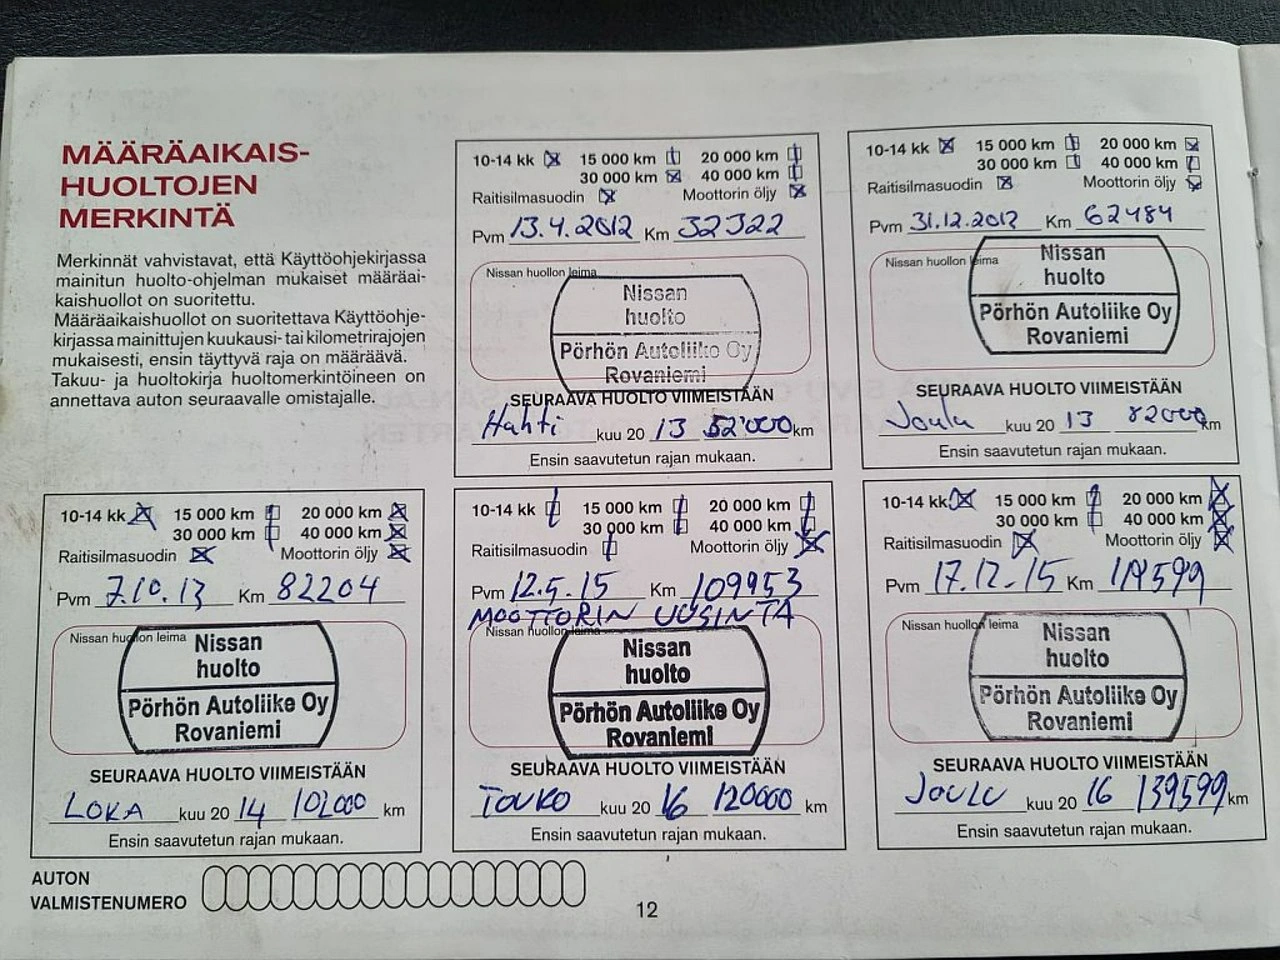 MÄÄRÄAIKAIS-
HUOLTOJEN
MERKINTÄ
Merkinnät vahvistavat, että Käyttöohjekirjassa
mainitun huolto-ohjelman mukaiset määräai-
kaishuollot on suoritettu.
Määräaikaishuollot on suoritettava Käyttöohje-
kirjassa mainittujen kuukausi- tai kilometrirajojen
mukaisesti, ensin täyttyvä raja on määräävä.
Takuu- ja huoltokirja huoltomerkintöineen on
annettava auton seuraavalle omistajalle.
10-14 kk 15 000 km 20 000 km
30 000 km 40 000 km
Raitisilmasuodin Moottorin öljy
Pvm 13.4.2012 Km 32322
Nissan huollon leima
Nissan
huolto
Pörhön Autoliike Oy
Rovaniemi
SEURAAVA HUOLTO VIIMEISTÄÄN
Huhti kuu 20 13 52'000 km
Ensin saavutetun rajan mukaan.
10-14 kk 15 000 km 20 000 km
30 000 km 40 000 km
Raitisilmasuodin Moottorin öljy
Pvm 31.12.2012 Km 62484
Nissan huollon leima
Nissan
huolto
Pörhön Autoliike Oy
Rovaniemi
SEURAAVA HUOLTO VIIMEISTÄÄN
Joulu kuu 20 13 82000 km
Ensin saavutetun rajan mukaan.
10-14 kk 15 000 km 20 000 km
30 000 km 40 000 km
Raitisilmasuodin Moottorin öljy
Pvm 7.10.13 Km 82204
Nissan huollon leima
Nissan
huolto
Pörhön Autoliike Oy
Rovaniemi
SEURAAVA HUOLTO VIIMEISTÄÄN
LOKA kuu 20 14 102000 km
Ensin saavutetun rajan mukaan.
10-14 kk 15 000 km 20 000 km
30 000 km 40 000 km
Raitisilmasuodin Moottorin öljy
Pvm 12.5.15 Km 109953
MOOTTORIN UUSINTA
Nissan huollon leima
Nissan
huolto
Pörhön Autoliike Oy
Rovaniemi
SEURAAVA HUOLTO VIIMEISTÄÄN
TOUKO kuu 20 16 120000 km
Ensin saavutetun rajan mukaan.
10-14 kk 15 000 km 20 000 km
30 000 km 40 000 km
Raitisilmasuodin Moottorin öljy
Pvm 17.12.-15 Km 119599
Nissan huollon leima
Nissan
huolto
Pörhön Autoliike Oy
Rovaniemi
SEURAAVA HUOLTO VIIMEISTÄÄN
JOULU kuu 20 16 139599 km
Ensin saavutetun rajan mukaan.
AUTON
VALMISTENUMERO
12